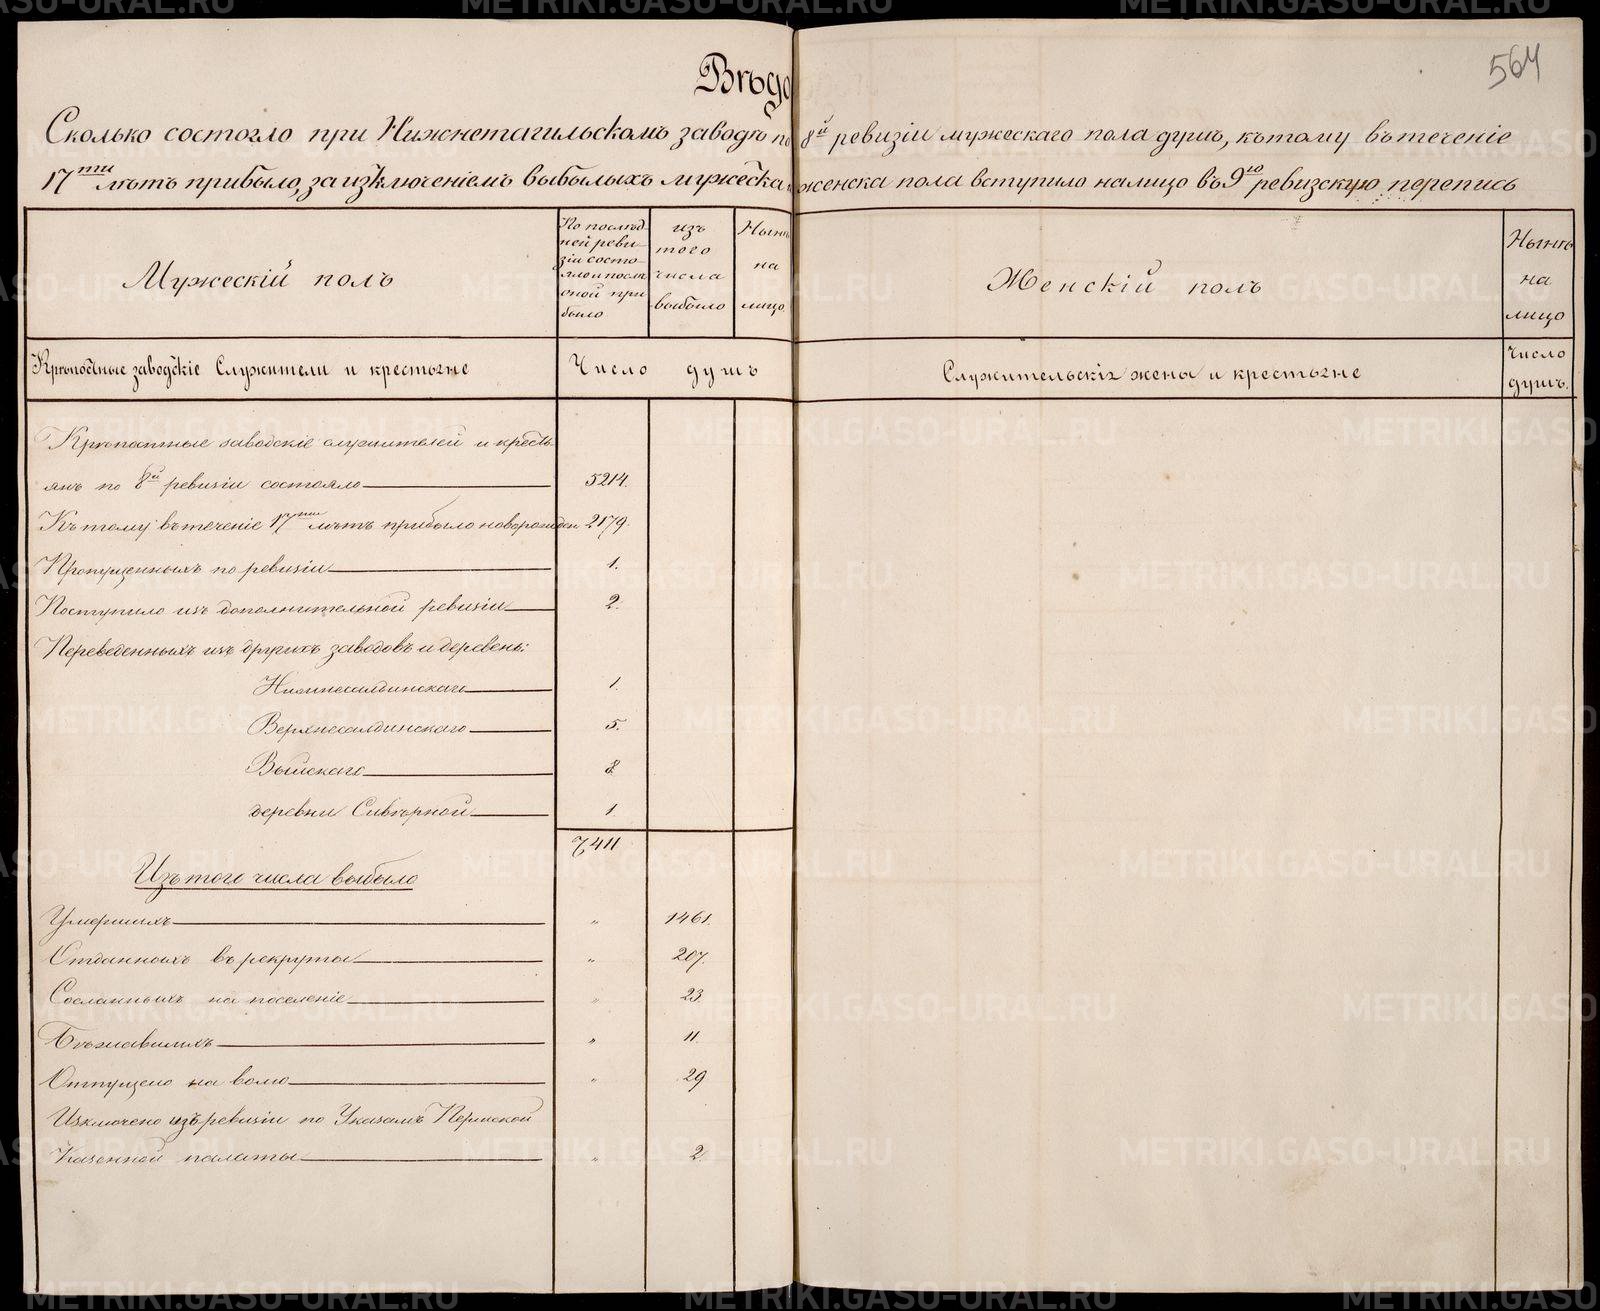 564
Вѣдо
Сколько состояло при Нижнетагильскомъ заводѣ по 8й ревизіи мужескаго пола душъ, къ тому въ теченіе
17ти лѣтъ прибыло, за изключеніемъ выбылыхъ мужеска и женска пола вступило на лицо въ 9ю ревизскую перепись
Мужескій полъ
По послѣд-
ней реви-
зіи состо-
яло и послѣ
оной при
было
изъ
того
числа
выбыло
Нынѣ
на
лицо
Женскій полъ
Нынѣ
на
лицо
Крѣпостные заводскіе Служители и крестьяне
Число душъ
Служительскія жены и крестьяне
Число
душъ.
Крѣпостные заводскіе служителей и кресть-
янъ по 8й ревизіи состояло 5214.
Къ тому въ теченіе 17ти лѣтъ прибыло новорожден 2179.
Пропущенныхъ по ревизіи 1.
Поступило изъ дополнительной ревизіи 2.
Переведенныхъ изъ другихъ заводовъ и деревень:
Нижнесалдинскаго 1.
Верхнесалдинскаго 5.
Выйскаго 8.
деревни Сивѣрной 1.
7411
Изъ того числа выбыло
Умершихъ " 1461.
Отданныхъ въ рекруты " 207.
Сосланныхъ на поселеніе " 23
Бѣжавшихъ " 11.
Отпущено на волю " 29
Изключено изъ ревизіи по Указамъ Пермской
Казенной палаты " 2.
METRIKI.GASO-URAL.RU